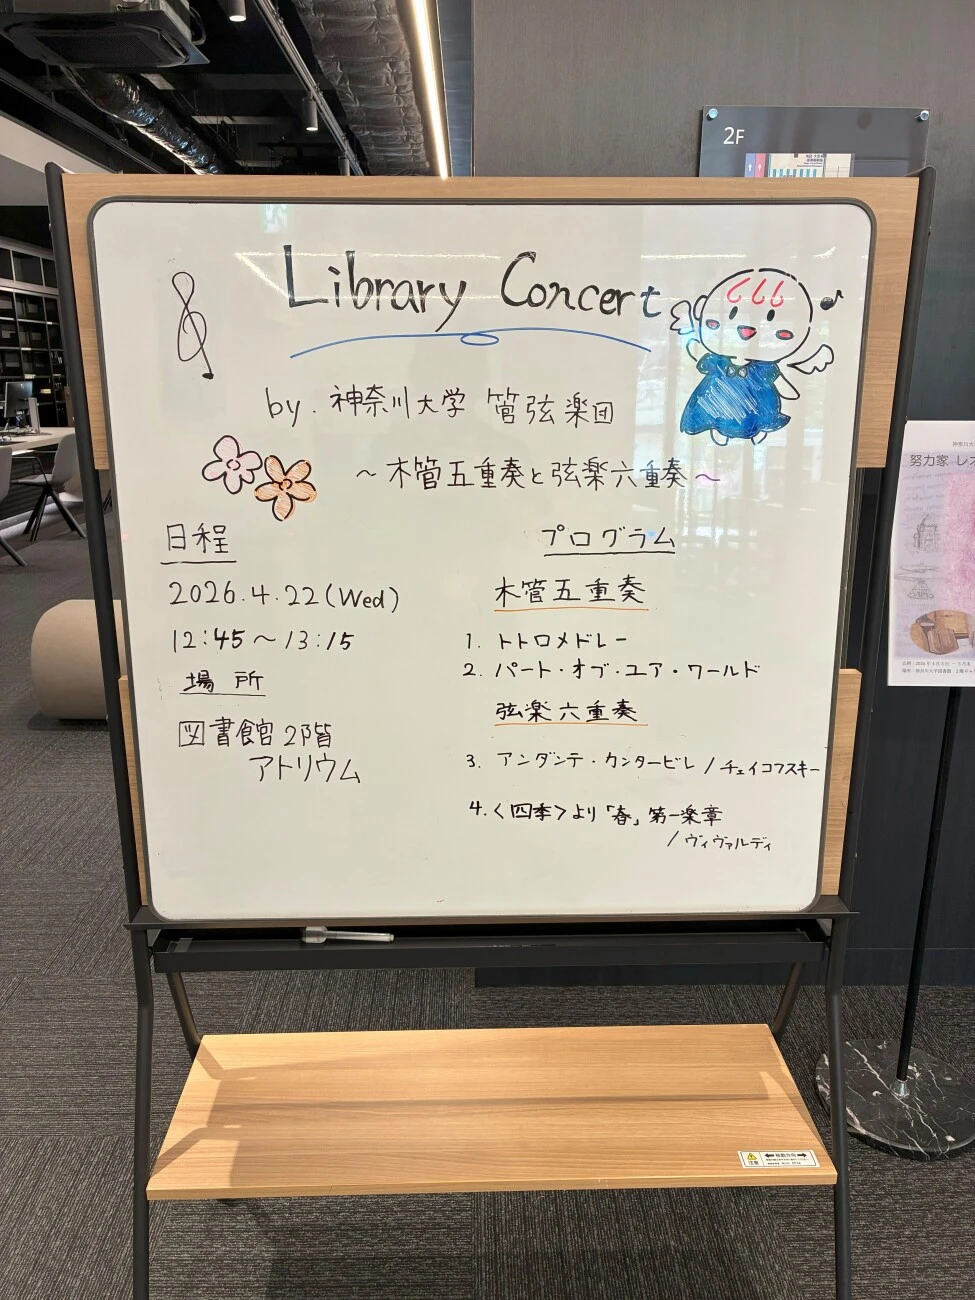 2F
Library Concert
by. 神奈川大学 管弦楽団
～木管五重奏と弦楽六重奏～
日程
2026.4.22(Wed)
12:45～13:15
場所
図書館2階
アトリウム
プログラム
木管五重奏
1. トトロメドレー
2. パート・オブ・ユア・ワールド
弦楽六重奏
3. アンダンテ・カンタービレ / チェイコフスキー
4.〈四季〉より「春」第一楽章
/ ヴィヴァルディ
神奈川大
努力家 レオ
注意